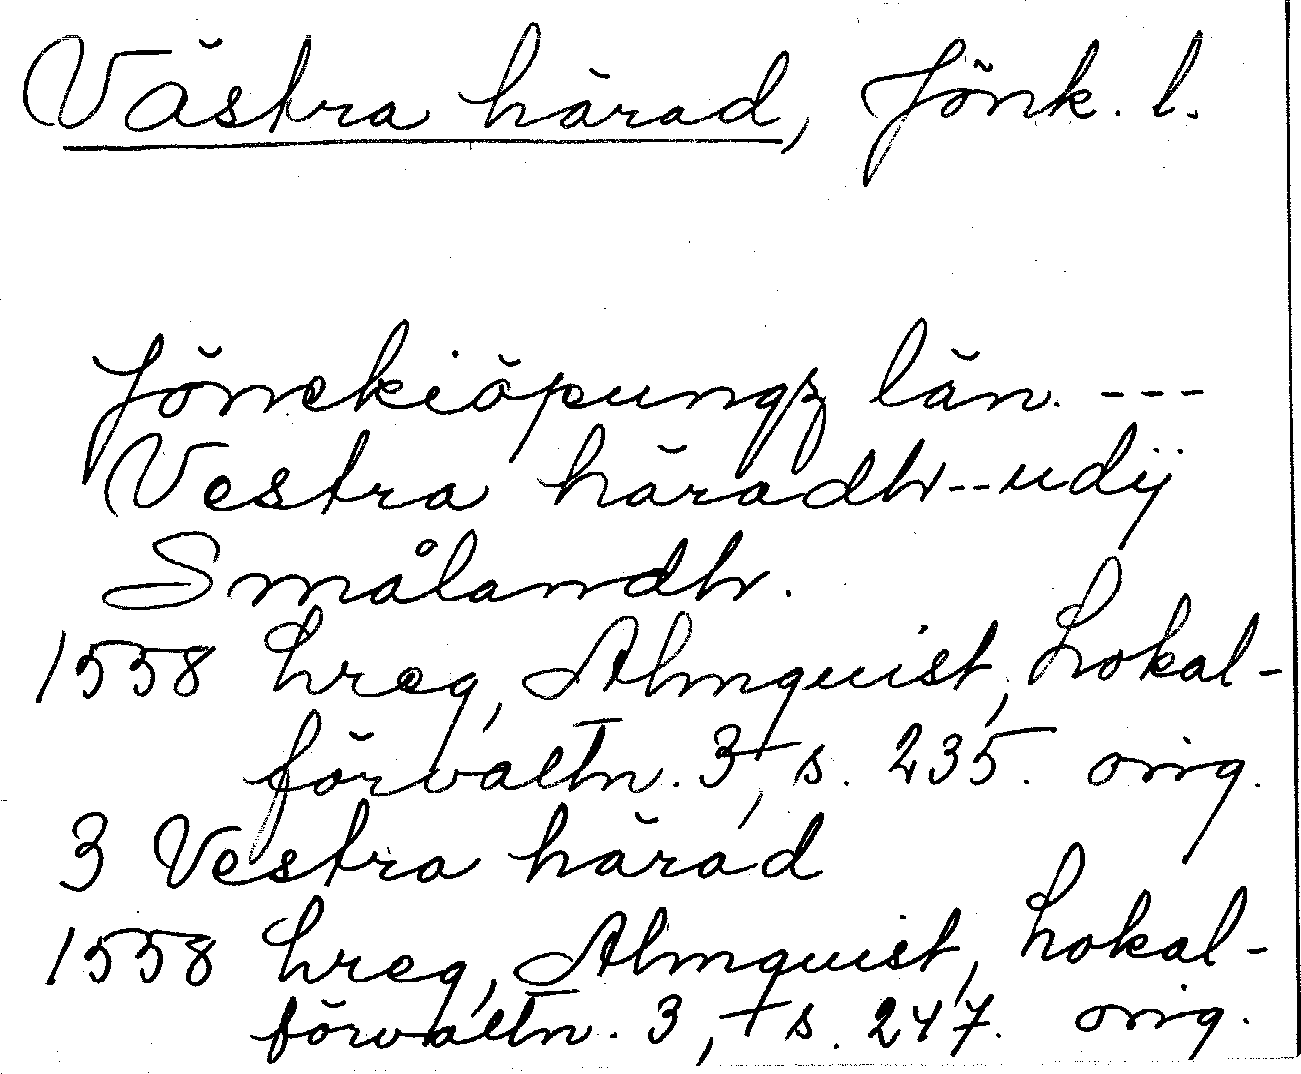 Västra härad, Jönk. l.
Jönekiöpungz län. ---
Vestra häradh -- udij
Smålandh.
1558 hreg, Almquist, Lokal-
förvaltn. 3, s. 235. orig.
3 Vestra härad
1558 hreg, Almquist, Lokal-
förvaltn. 3, s. 247. orig.